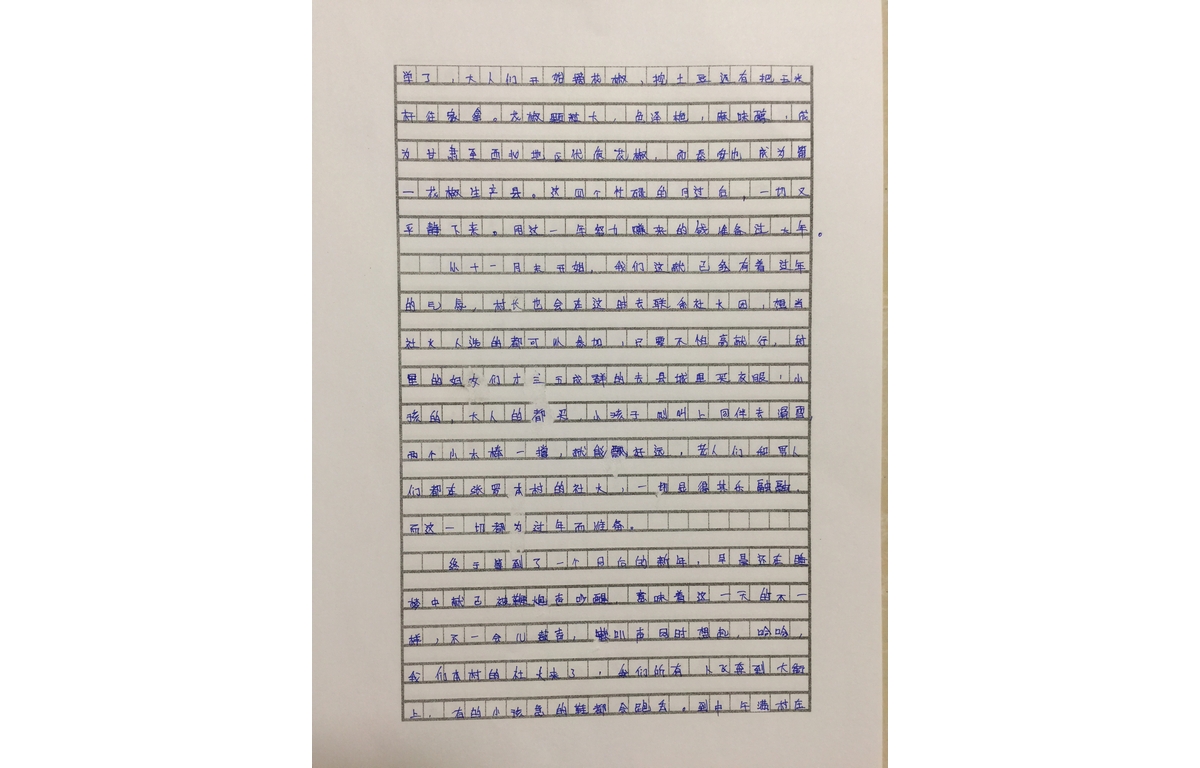 单了，大人们开始摘花椒，挖土豆还有把玉米
杆往家拿。花椒颗粒大，色泽艳，麻味醇，成
为甘肃至西北地区代表花椒，而秦安也成为第
一花椒生产县。这四个忙碌的月过后，一切又
平静下来。用这一年努力赚来的钱准备过大年。
从十一月末开始，我们这就已经有着过年
的气息，村长也会在这时去联系社火团，想当
社火人选的都可以参加，只要不怕高就行。村
里的妇女们才三五成群的去县城里买衣服，小
孩的，大人的都买，小孩子则叫上同伴去滑雪，
两个小木棒一撑，就能飘好远，老人们和男人
们都在张罗本村的社火，一切显得其乐融融，
而这一切都为过年而准备。
终于等到了一个月后的新年，早晨还在睡
梦中就已被鞭炮声吵醒，意味着这一天的不一
样，不一会儿鼓声，喇叭声同时想起，哈哈，
我们本村的社火来了，我们所有人飞奔到大街
上，有的小孩急的鞋都会跑丢。到中午满村庄